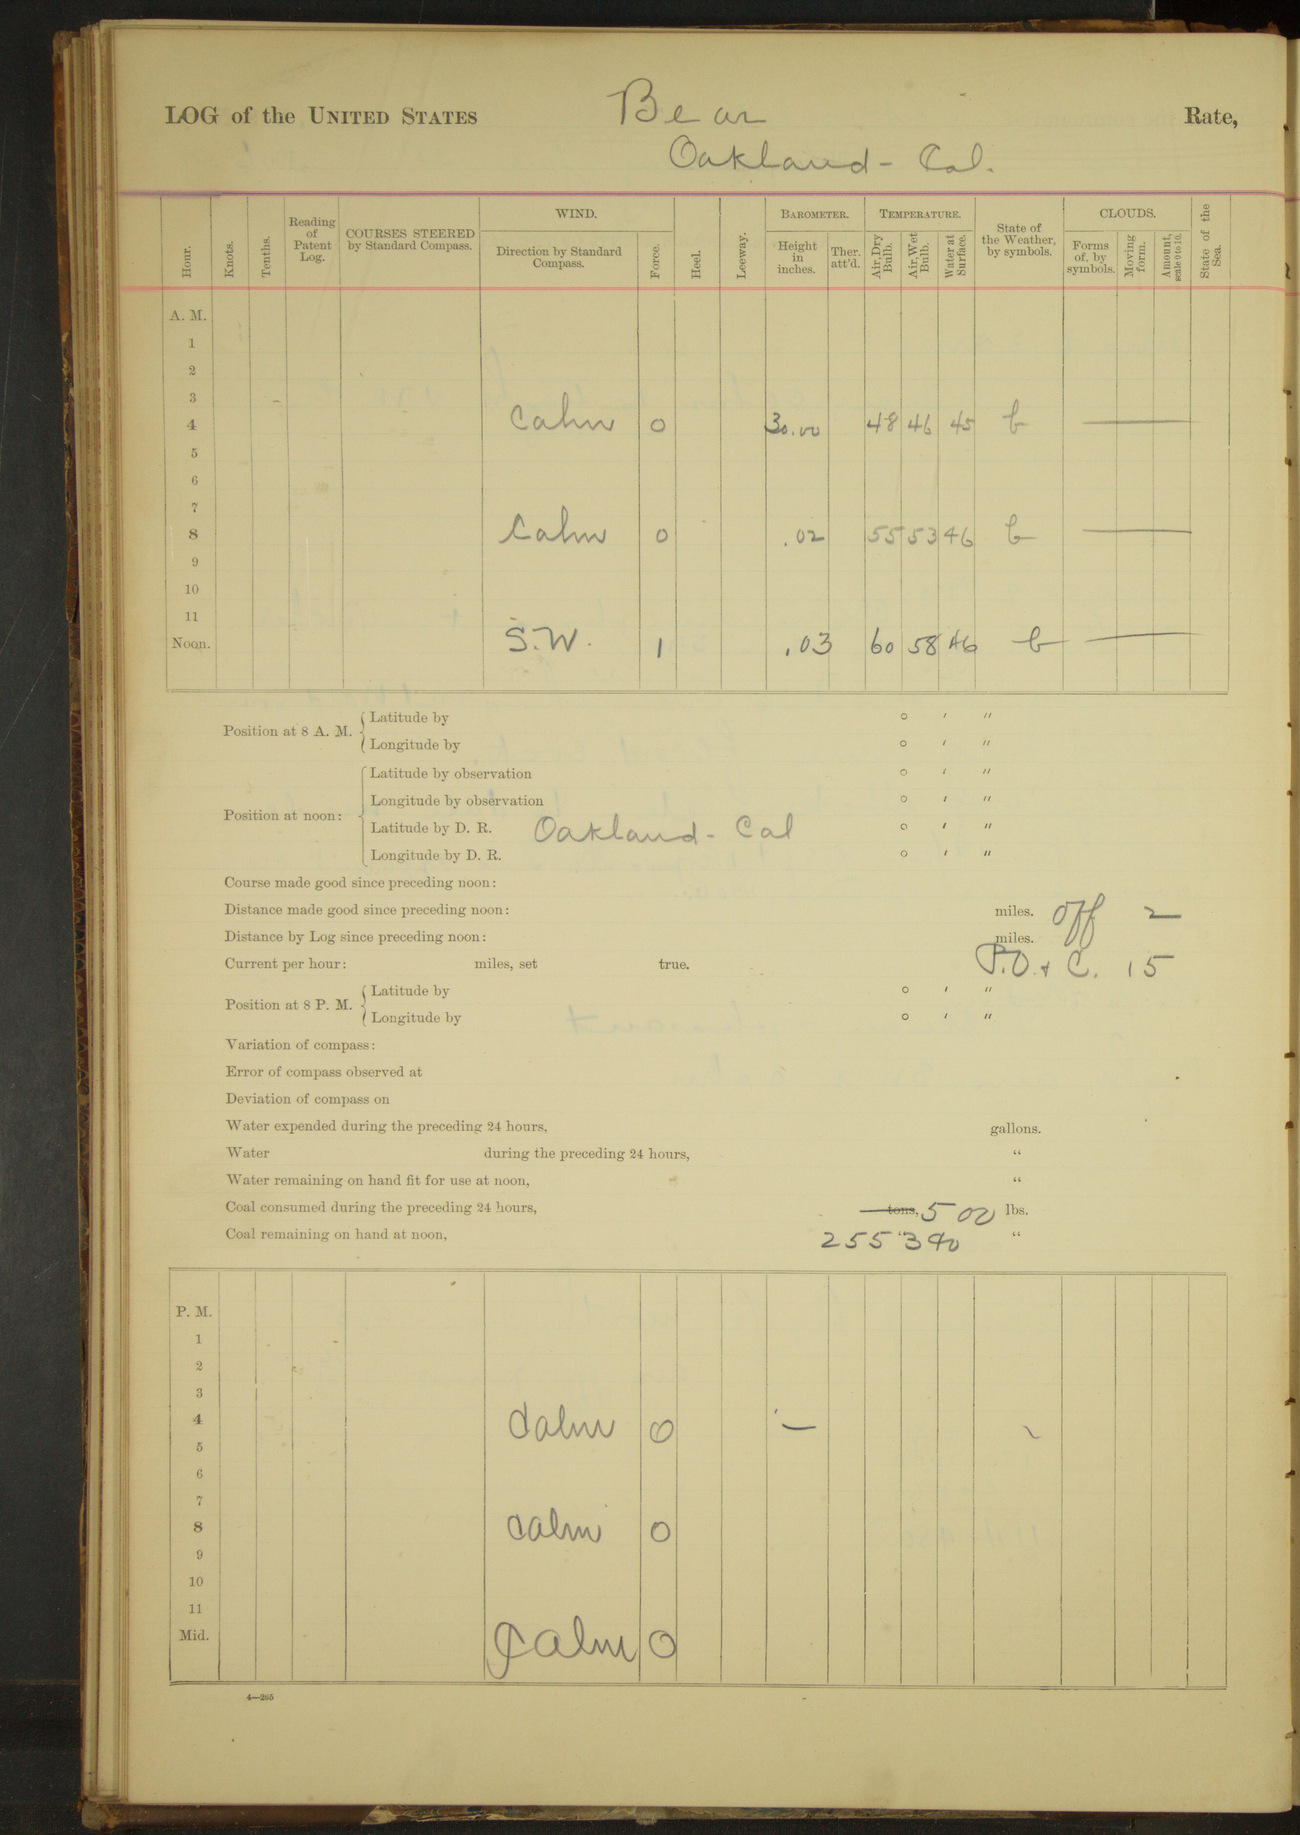 LOG of the UNITED STATES Bear Rate,
Oakland - Cal.
Hour. Knots. Tenths. Reading of Patent Log. COURSES STEERED by Standard Compass. WIND. Direction by Standard Compass. Force. Heel. Leeway. BAROMETER. Height in inches. Ther. att'd. TEMPERATURE. Air, Dry Bulb. Air, Wet Bulb. Water at Surface. State of the Weather, by symbols. CLOUDS. Forms of, by symbols. Moving form. Amount, scale 0 to 10. State of the Sea.
A. M.
1
2
3
4 Calm 0 30.00 48 46 45 b
5
6
7
8 Calm 0 .02 55 53 46 b
9
10
11
Noon. S.W. 1 .03 60 58 46 b
Position at 8 A. M. Latitude by ° ′ ″
Longitude by ° ′ ″
Position at noon: Latitude by observation ° ′ ″
Longitude by observation ° ′ ″
Latitude by D. R. Oakland - Cal ° ′ ″
Longitude by D. R. ° ′ ″
Course made good since preceding noon:
Distance made good since preceding noon: miles. Off 2
Distance by Log since preceding noon: miles.
Current per hour: miles, set true. P.O. + C. 15
Position at 8 P. M. Latitude by ° ′ ″
Longitude by ° ′ ″
Variation of compass:
Error of compass observed at
Deviation of compass on
Water expended during the preceding 24 hours, gallons.
Water during the preceding 24 hours, “
Water remaining on hand fit for use at noon, “
Coal consumed during the preceding 24 hours, tons, 500 lbs.
Coal remaining on hand at noon, 255 “ 390 “
P. M.
1
2
3
4 Calm 0 —
5
6
7
8 Calm 0
9
10
11
Mid. Calm 0
4—265